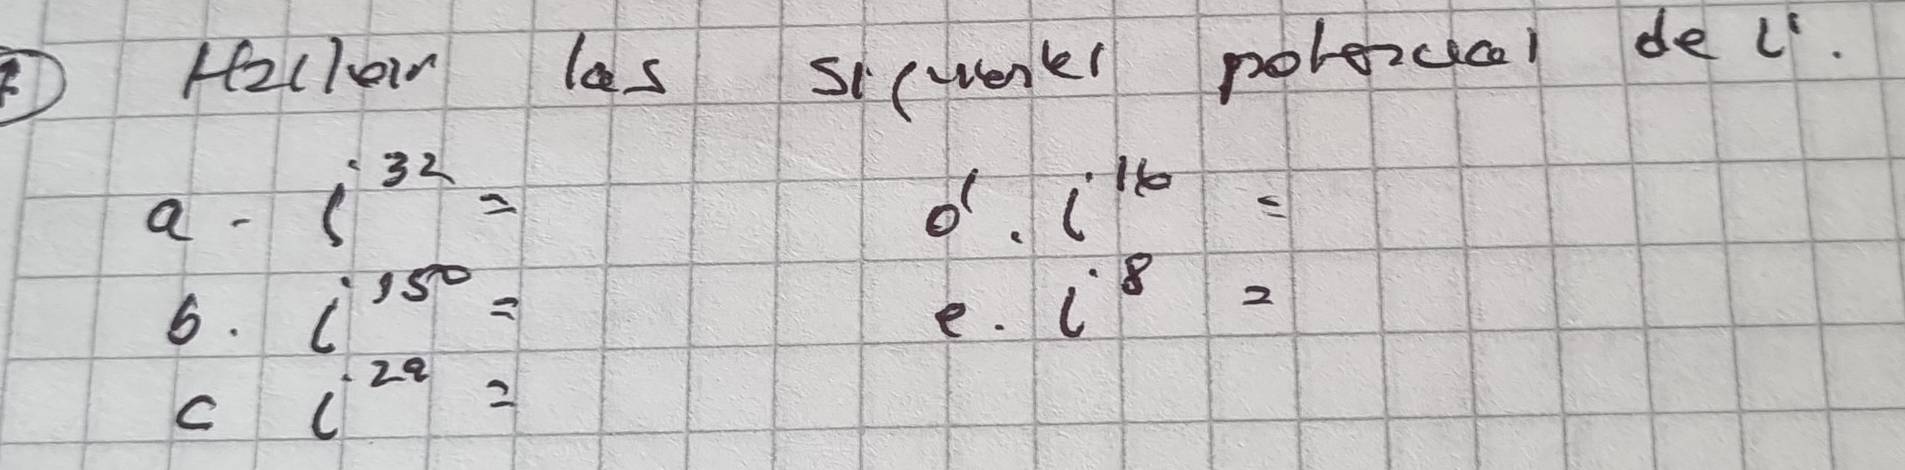 Hallar las siguientes potencias de i.
a - i^32 = d. i^16 =
b. i^150 = e. i^8 =
c i^29 =